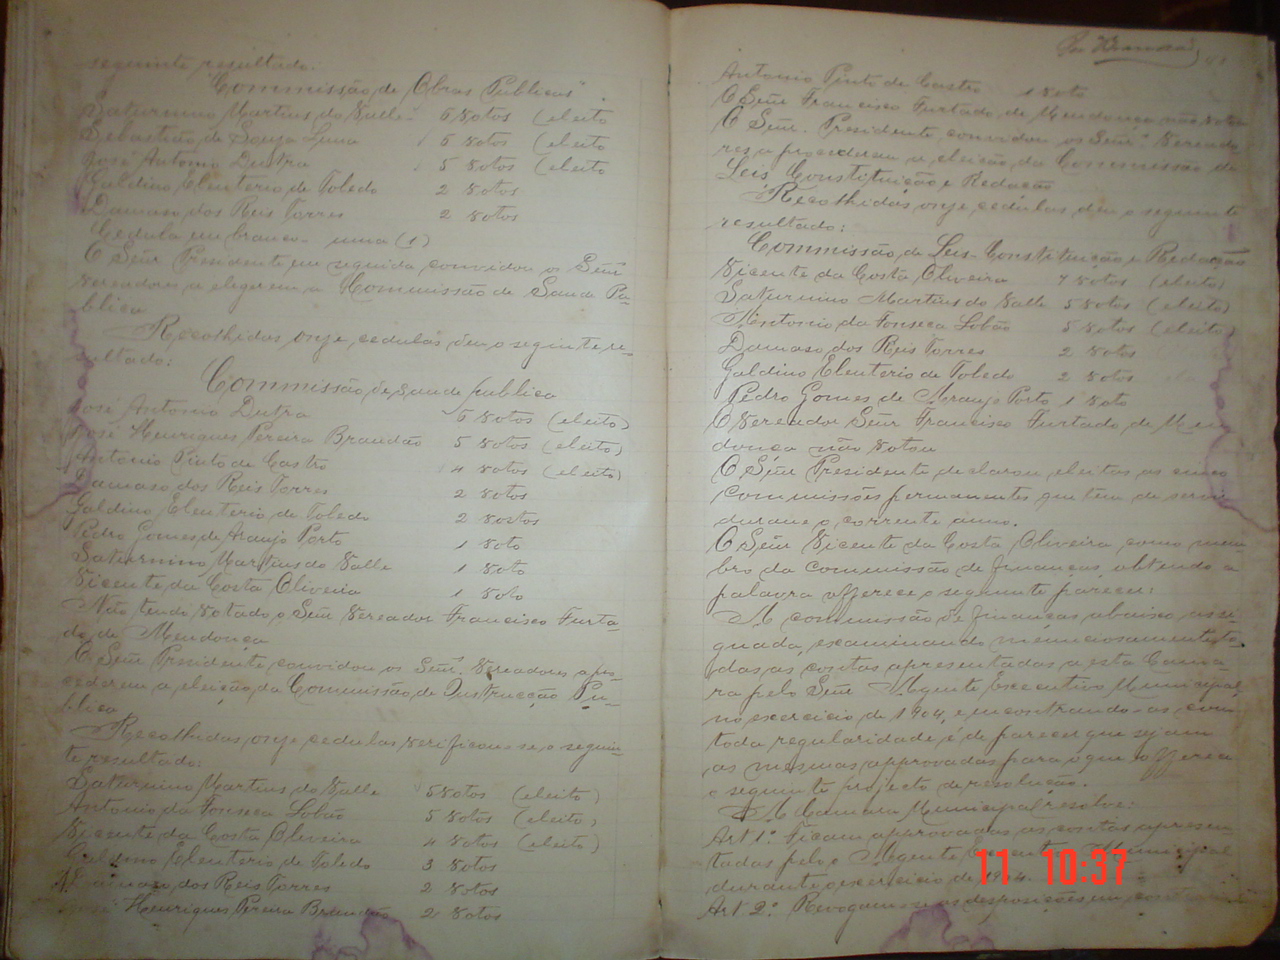 seguinte resultado:
"Commissão de Obras Publicas"
Saturnino Martins do Valle 6 Votos (eleito
Sebastião de Souza Lima 6 Votos (eleito
José Antonio Dutra 5 Votos (eleito
Galdino Eleuterio de Toledo 2 Votos
Damaso dos Reis Torres 2 Votos
Cedula em branco - uma (1)
O Señr Presidente em seguida convidou os Señrs
Vereadores a elegerem a Commissão de Saude Pu-
blica
Recolhidas onze cedulas deu o seguinte re-
sultado:
Commissão de Saude publica
José Antonio Dutra 5 Votos (eleito)
José Henriques Pereira Brandão 5 Votos (eleito)
Antonio Pinto de Castro 4 Votos (eleito)
Damaso dos Reis Torres 2 Votos
Galdino Eleuterio de Toledo 2 Vostos
Pedro Gomes de Araujo Porto 1 Voto
Saturnino Martins do Valle 1 Voto
Vicente da Costa Oliveira 1 Voto
Não tendo Votado o Señr Vereador Francisco Furta-
do de Mendonça
O Señr Presidente convidou os Señrs Vereadores a pro-
cederem a eleição da Commissão de Instrucção Pu-
blica
Recolhidas onze cedulas Verificou-se o seguin-
te resultado:
Saturnino Martins do Valle 5 Votos (eleito)
Antonio da Fonseca Lobão 5 Votos (eleito)
Vicente da Costa Oliveira 4 Votos (eleito)
Galdino Eleuterio de Toledo 3 Votos
Damaso dos Reis Torres 2 Votos
José Henriques Pereira Brandão 2 Votos
Antonio Pinto de Castro 1 Voto
O Señr Francisco Furtado de Mendonca não Votou
O Señr. Presidente convidou os Señrs Vereado
res a procederem a eleição da Commissão de
Leis Constituição e Redação
Recolhidas onze cedulas deu o seguinte
resultado:
Commissão de Leis Constituição e Redação
Vicente da Costa Oliveira 7 Votos (eleito)
Saturnino Martins do Valle 5 Votos (eleito)
Antonio da Fonseca Lobão 5 Votos (eleito)
Damaso dos Reis Torres 2 Votos
Galdino Eleuterio de Toledo 2 Votos
Pedro Gomes de Araujo Porto 1 Voto
O Vereador Señr Francisco Furtado de Men
donca não Votou
O Señr Presidente declarou eleitos as cinco
commissões permanentes que tem de servir
durante o corrente anno.
O Señr Vicente da Costa Oliveira como mem-
bro da commissão de finanças obtendo a
palavra offerece o seguinte parecer:
A commissão de finanças abaixo assi-
gnada, examinando minuciosamente to-
das as contas apresentadas a esta Cama-
ra pelo Señr Agente Executivo Municipal,
no exercicio de 1904, e encontrando-as com
toda regularidade é de parecer que sejam
as mesmas approvadas para o que offerece
o seguinte projecto de resolução.
A Camara Municipal resolve:
Art 1º Ficam approvadas as contas apresen
tadas pelo Agente Executivo Municipal
durante o exercicio de
Art 2º Revogam-se as desposições em
11 10:37